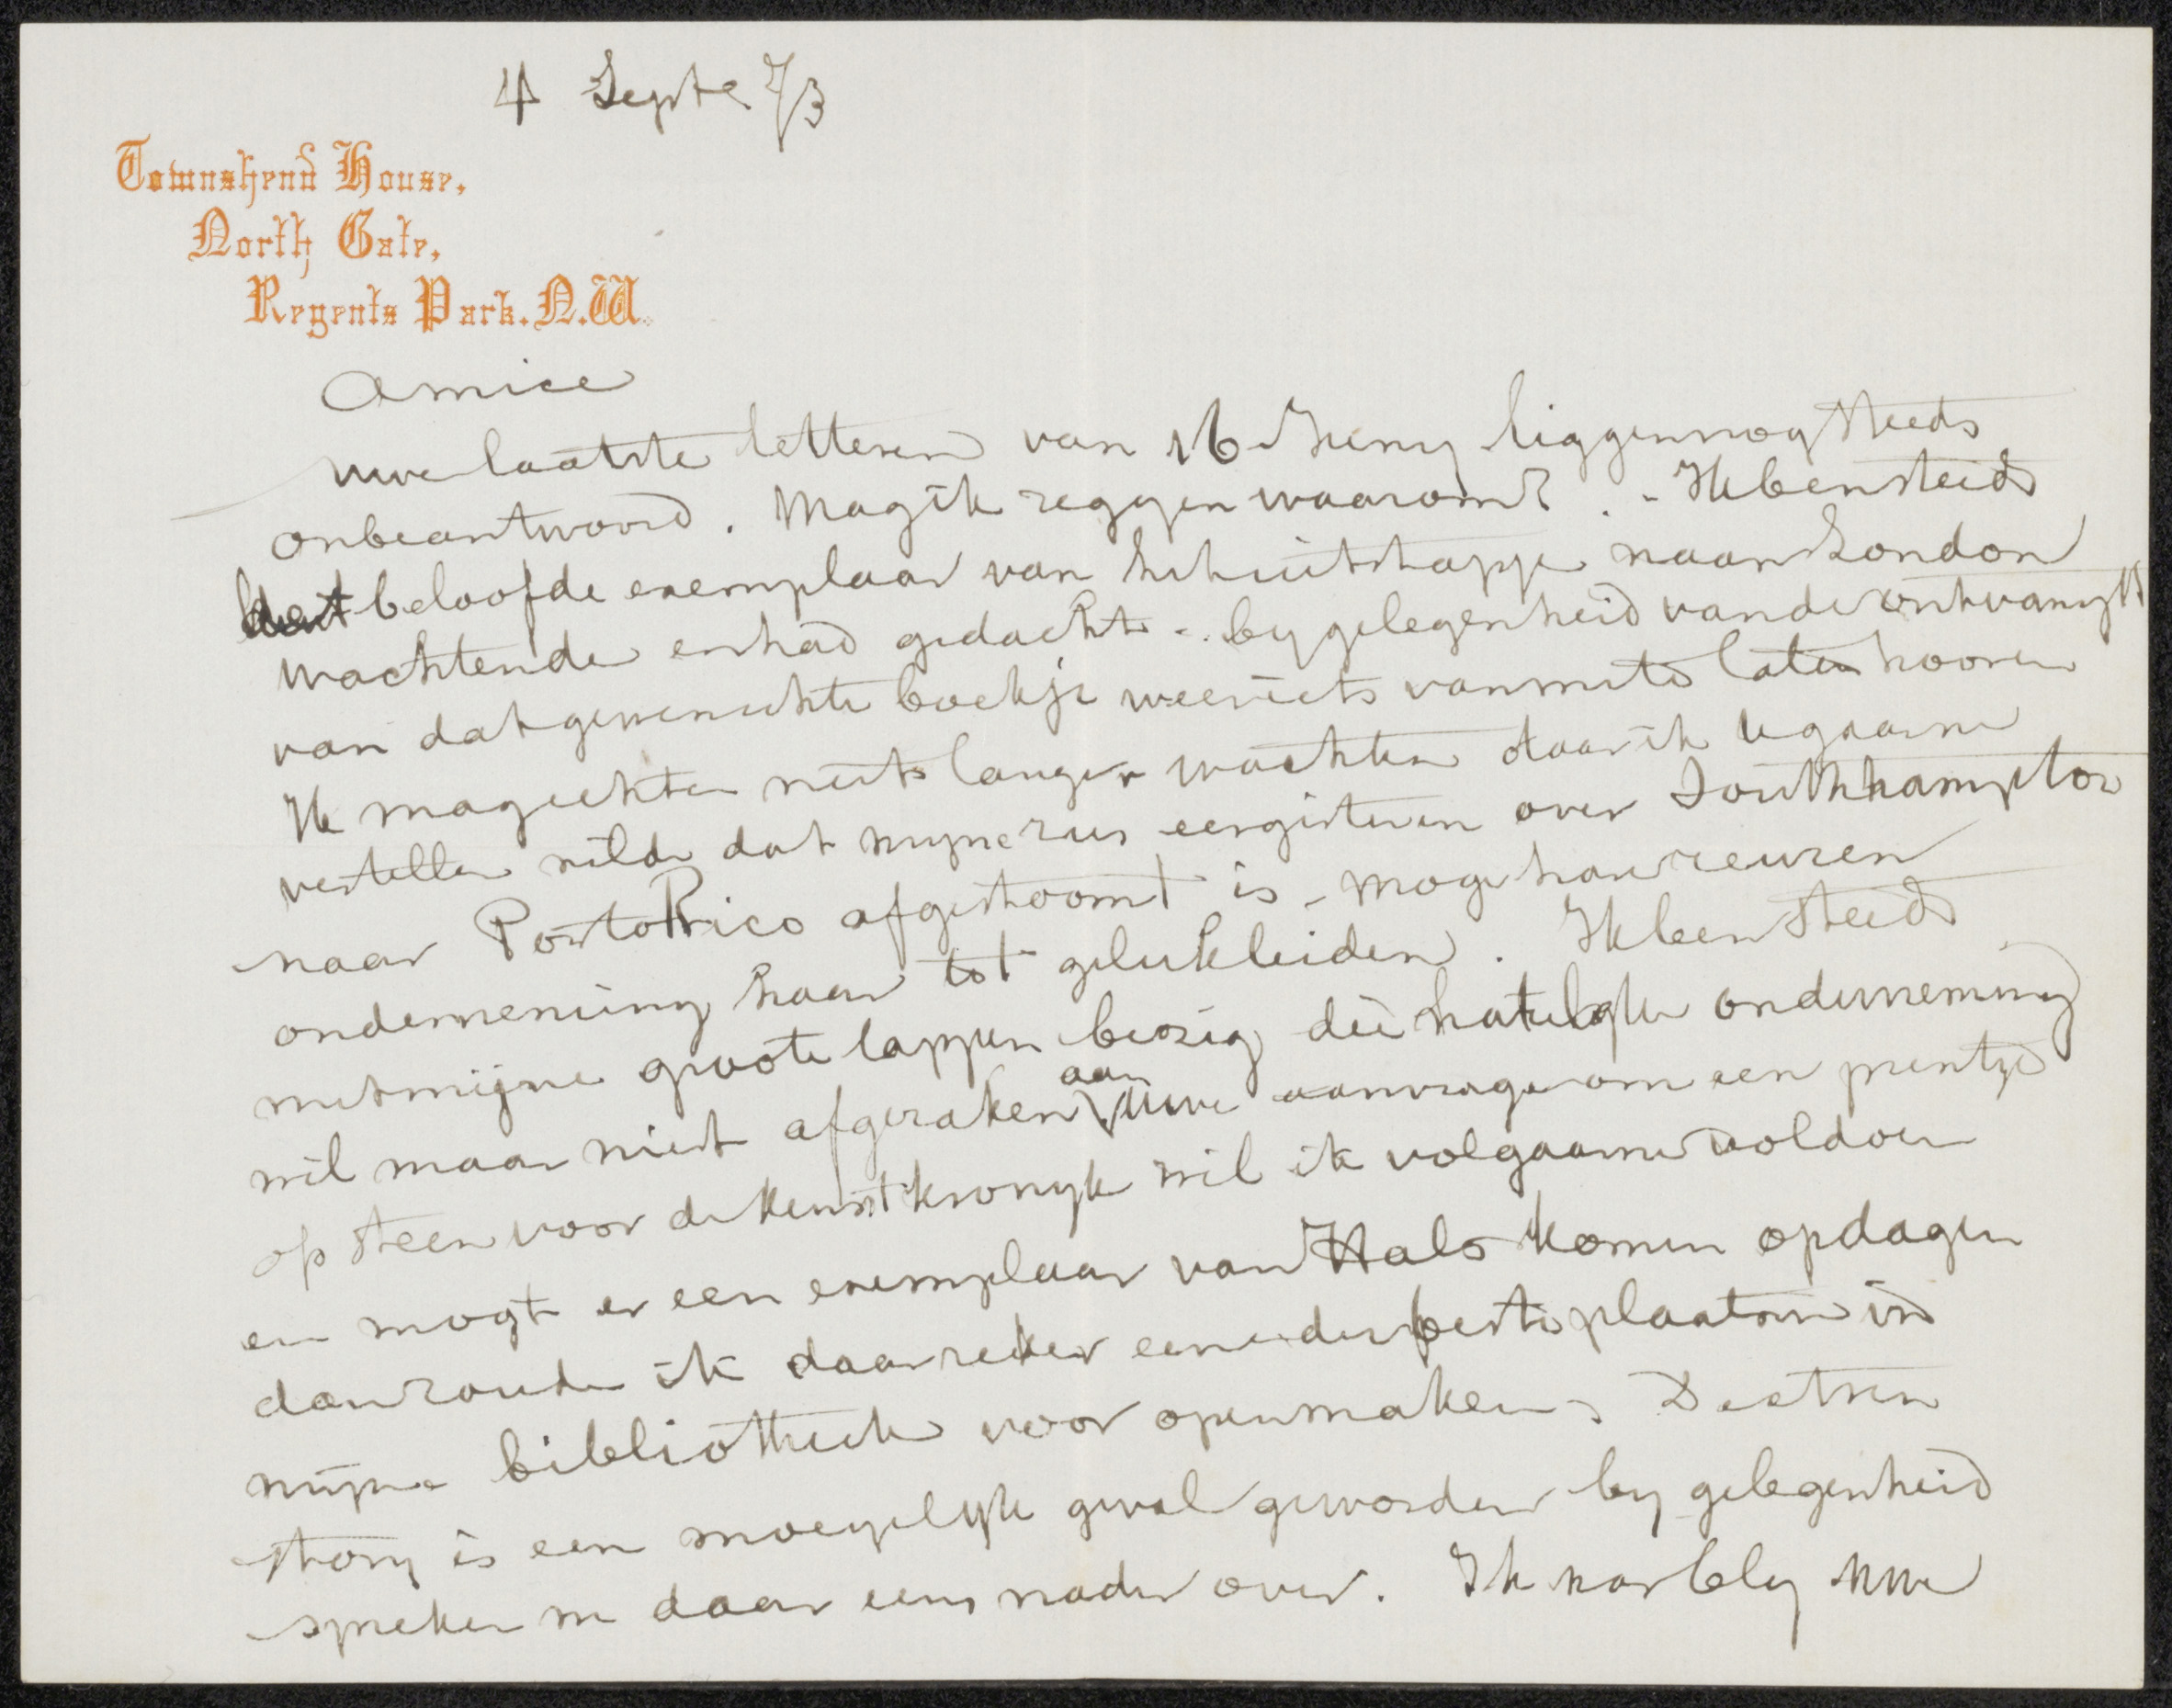 4 Septe 7/3
Townshend House,
North Gate,
Regents Park. N.W.
Amice
uwe laatste letteren van 16 Juny liggen nog steeds
onbeantwoord. Mag ik zeggen waarom? . - Ik ben steeds
het beloofde exemplaar van naar London
wachtende en had gedacht - by gelegenheid van de ontvangst
van dat gewenschte boekje weer iets van my te laten hooren
Ik mag echter niet langer wachten daar ik U gaarne
vertellen wilde dat myne zus eergisteren over Southhampton
naar Porto Rico afgestoomt is - moge haar reuzen
onderneming haar tot geluk leiden. Ik ben steeds
met mijne groote lappen bezig die hatelyke onderneming
wil maar niet afgeraken aan uwe aanvrage om een prentje
op steen voor de kunstkronyk wil ik volgaarne voldoen
en mogt er een exemplaar van Hals komen opdagen
dan zoude ik daar zeker een der beste plaatsen in
myne bibliotheek voor openmaken -
story is een moeyelyk geval geworden by gelegenheid
spreken we daar eens nader over. Ik hoor bly uwe